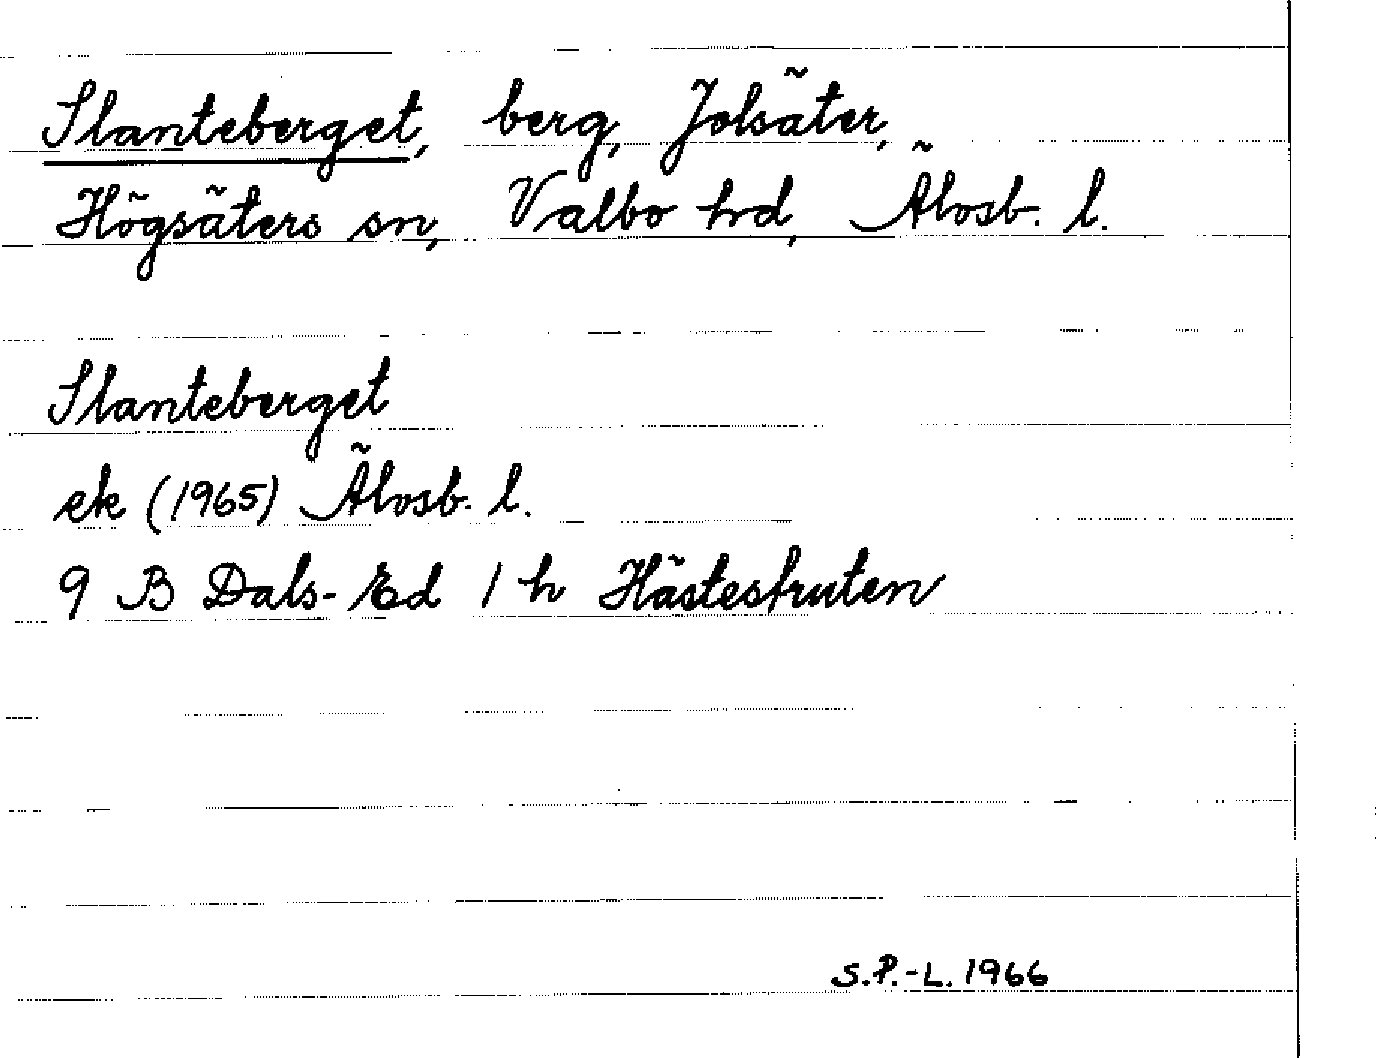 Slanteberget, berg, Jolsäter,
Högsäters sn, Valbo hd, Älvsb. l.
Slanteberget
ek (1965) Älvsb. l.
9 B Dals-Ed 1 h Hästeskruten
S.P.-L. 1966